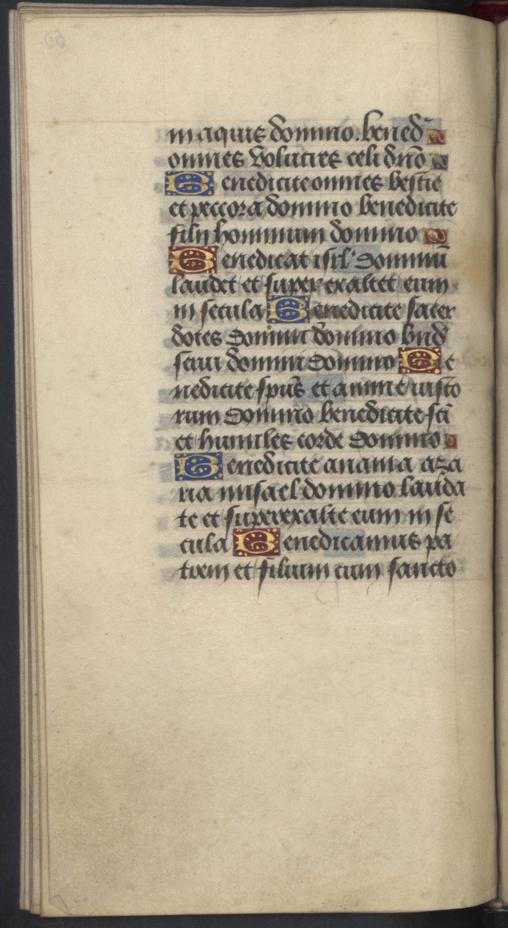 in aquis domino. bened̄
omnes volucres celi dn̄o
Benedicite omnes bestie
et peccora domino benedicite
filii hominum domino
Benedicat isrl' dominū
laudet et superexaltet eum
in secula Benedicite sacer
dotes domini domino bn̄d
serui domini domino Be
nedicite sp̄us et anime iusto
rum domino benedicite sc̄i
et humiles corde domino
Benedicite anania aza
ria misael domino lauda
te et superexalte eum in se
cula Benedicamus pa
trem et filium cum sancto